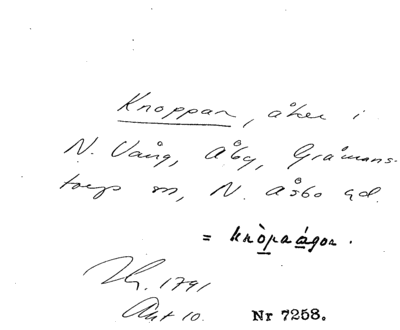 Knoppan, åker i
N. Vång, Åby, Gråmans-
torps sn, N. Åsbo hd.
= knòpaágor.
1791
Akt 10. Nr 7258.